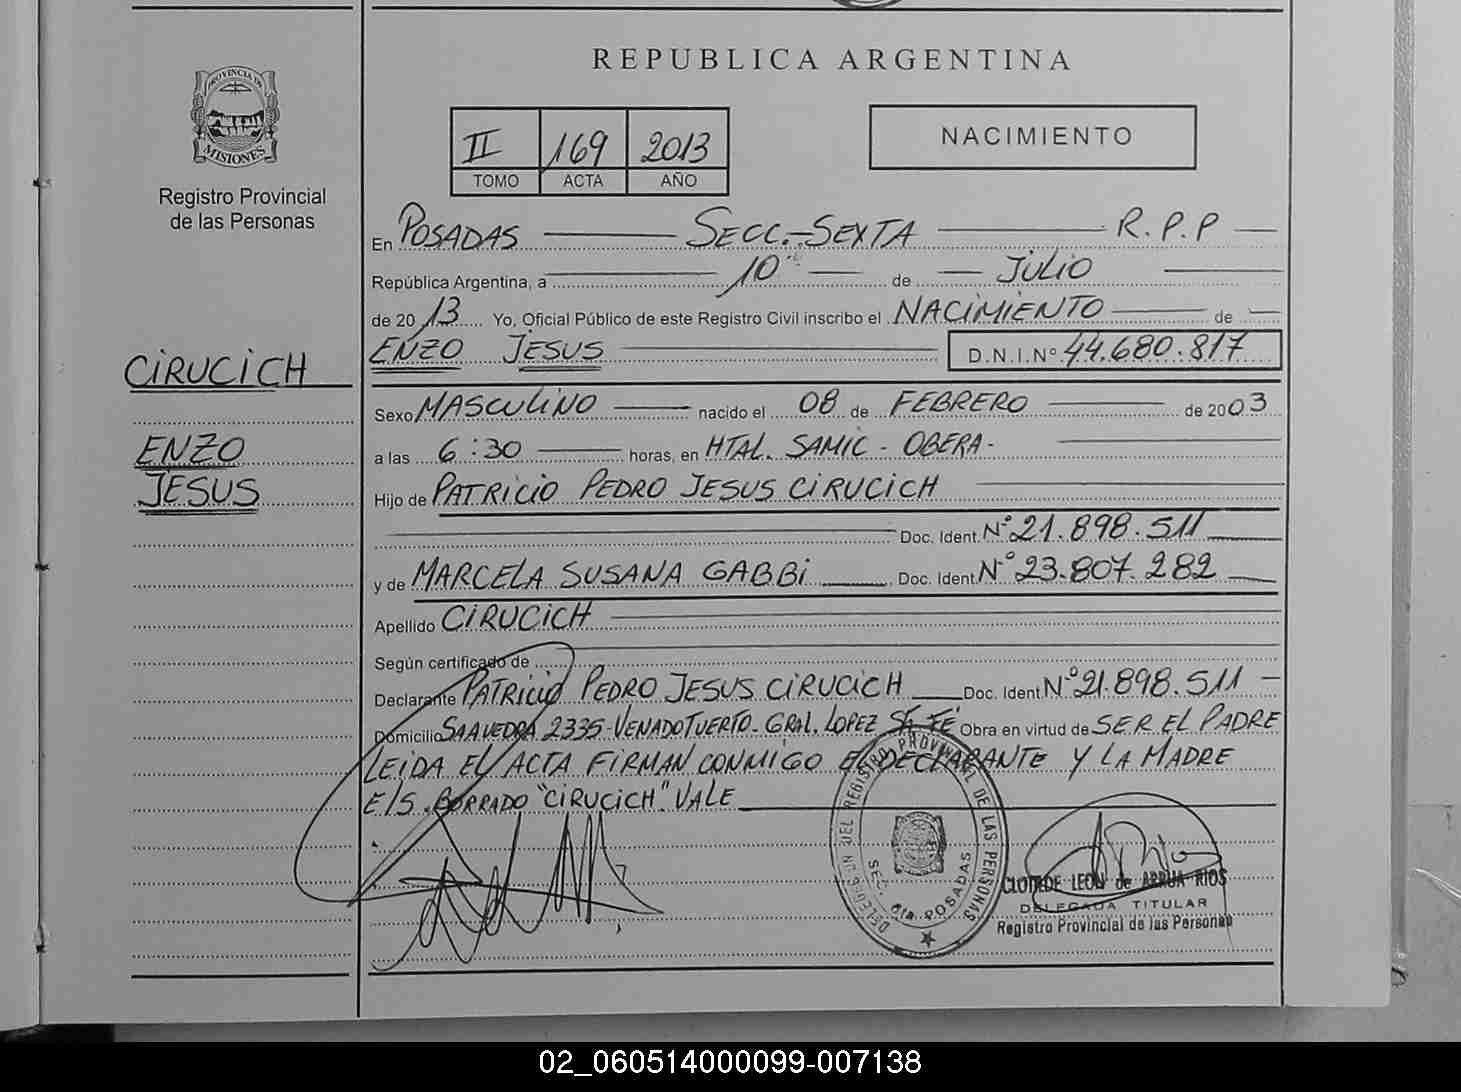 REPUBLICA ARGENTINA
PROVINCIA DE
MISIONES
Registro Provincial
de las Personas
II 169 2013
TOMO ACTA AÑO
NACIMIENTO
En POSADAS SECC.-SEXTA R.P.P
República Argentina, a 10 de JULIO
de 2013 Yo, Oficial Público de este Registro Civil inscribo el NACIMIENTO de
ENZO JESUS D.N.I.Nº 44.680.817
CIRUCICH
ENZO
JESUS
Sexo MASCULINO nacido el 08 de FEBRERO de 2003
a las 6:30 horas, en HTAL. SAMIC - OBERA-
Hijo de PATRICIO PEDRO JESUS CIRUCICH
Doc. Ident. Nº 21.898.511
y de MARCELA SUSANA GABBI Doc. Ident. Nº 23.807.282
Apellido CIRUCICH
Según certificado de
Declarante PATRICIO PEDRO JESUS CIRUCICH Doc. Ident. Nº 21.898.511 -
Domicilio SAAVEDRA 2335-VENADO TUERTO-GRAL. LOPEZ STA FE Obra en virtud de SER EL PADRE
LEIDA EL ACTA FIRMAN CONMIGO EL DECLARANTE Y LA MADRE
E/S. BORRADO "CIRUCICH" VALE
DELEGACION DEL REGISTRO PROVINCIAL DE LAS PERSONAS
SEC. 6ta. POSADAS
CLOTILDE LEON de ARRUA RIOS
DELEGADA TITULAR
Registro Provincial de las Personas
02_060514000099-007138